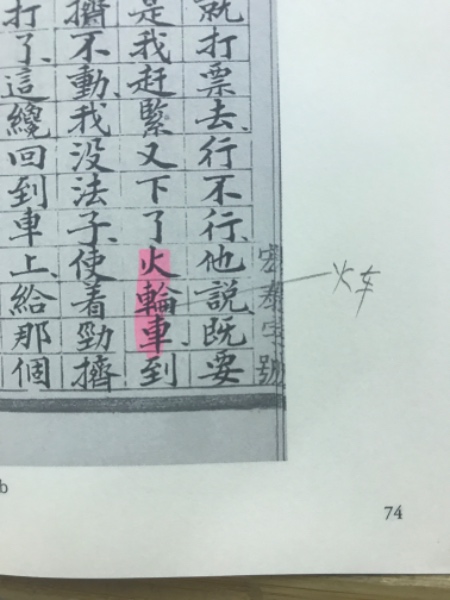 宏泰字號
就打票去、行不行、他說既要
是我赶緊又下了火輪車、到
擠不動、我没法子、使着勁擠
打了、這纔回到車上、給那個
火车
b
74